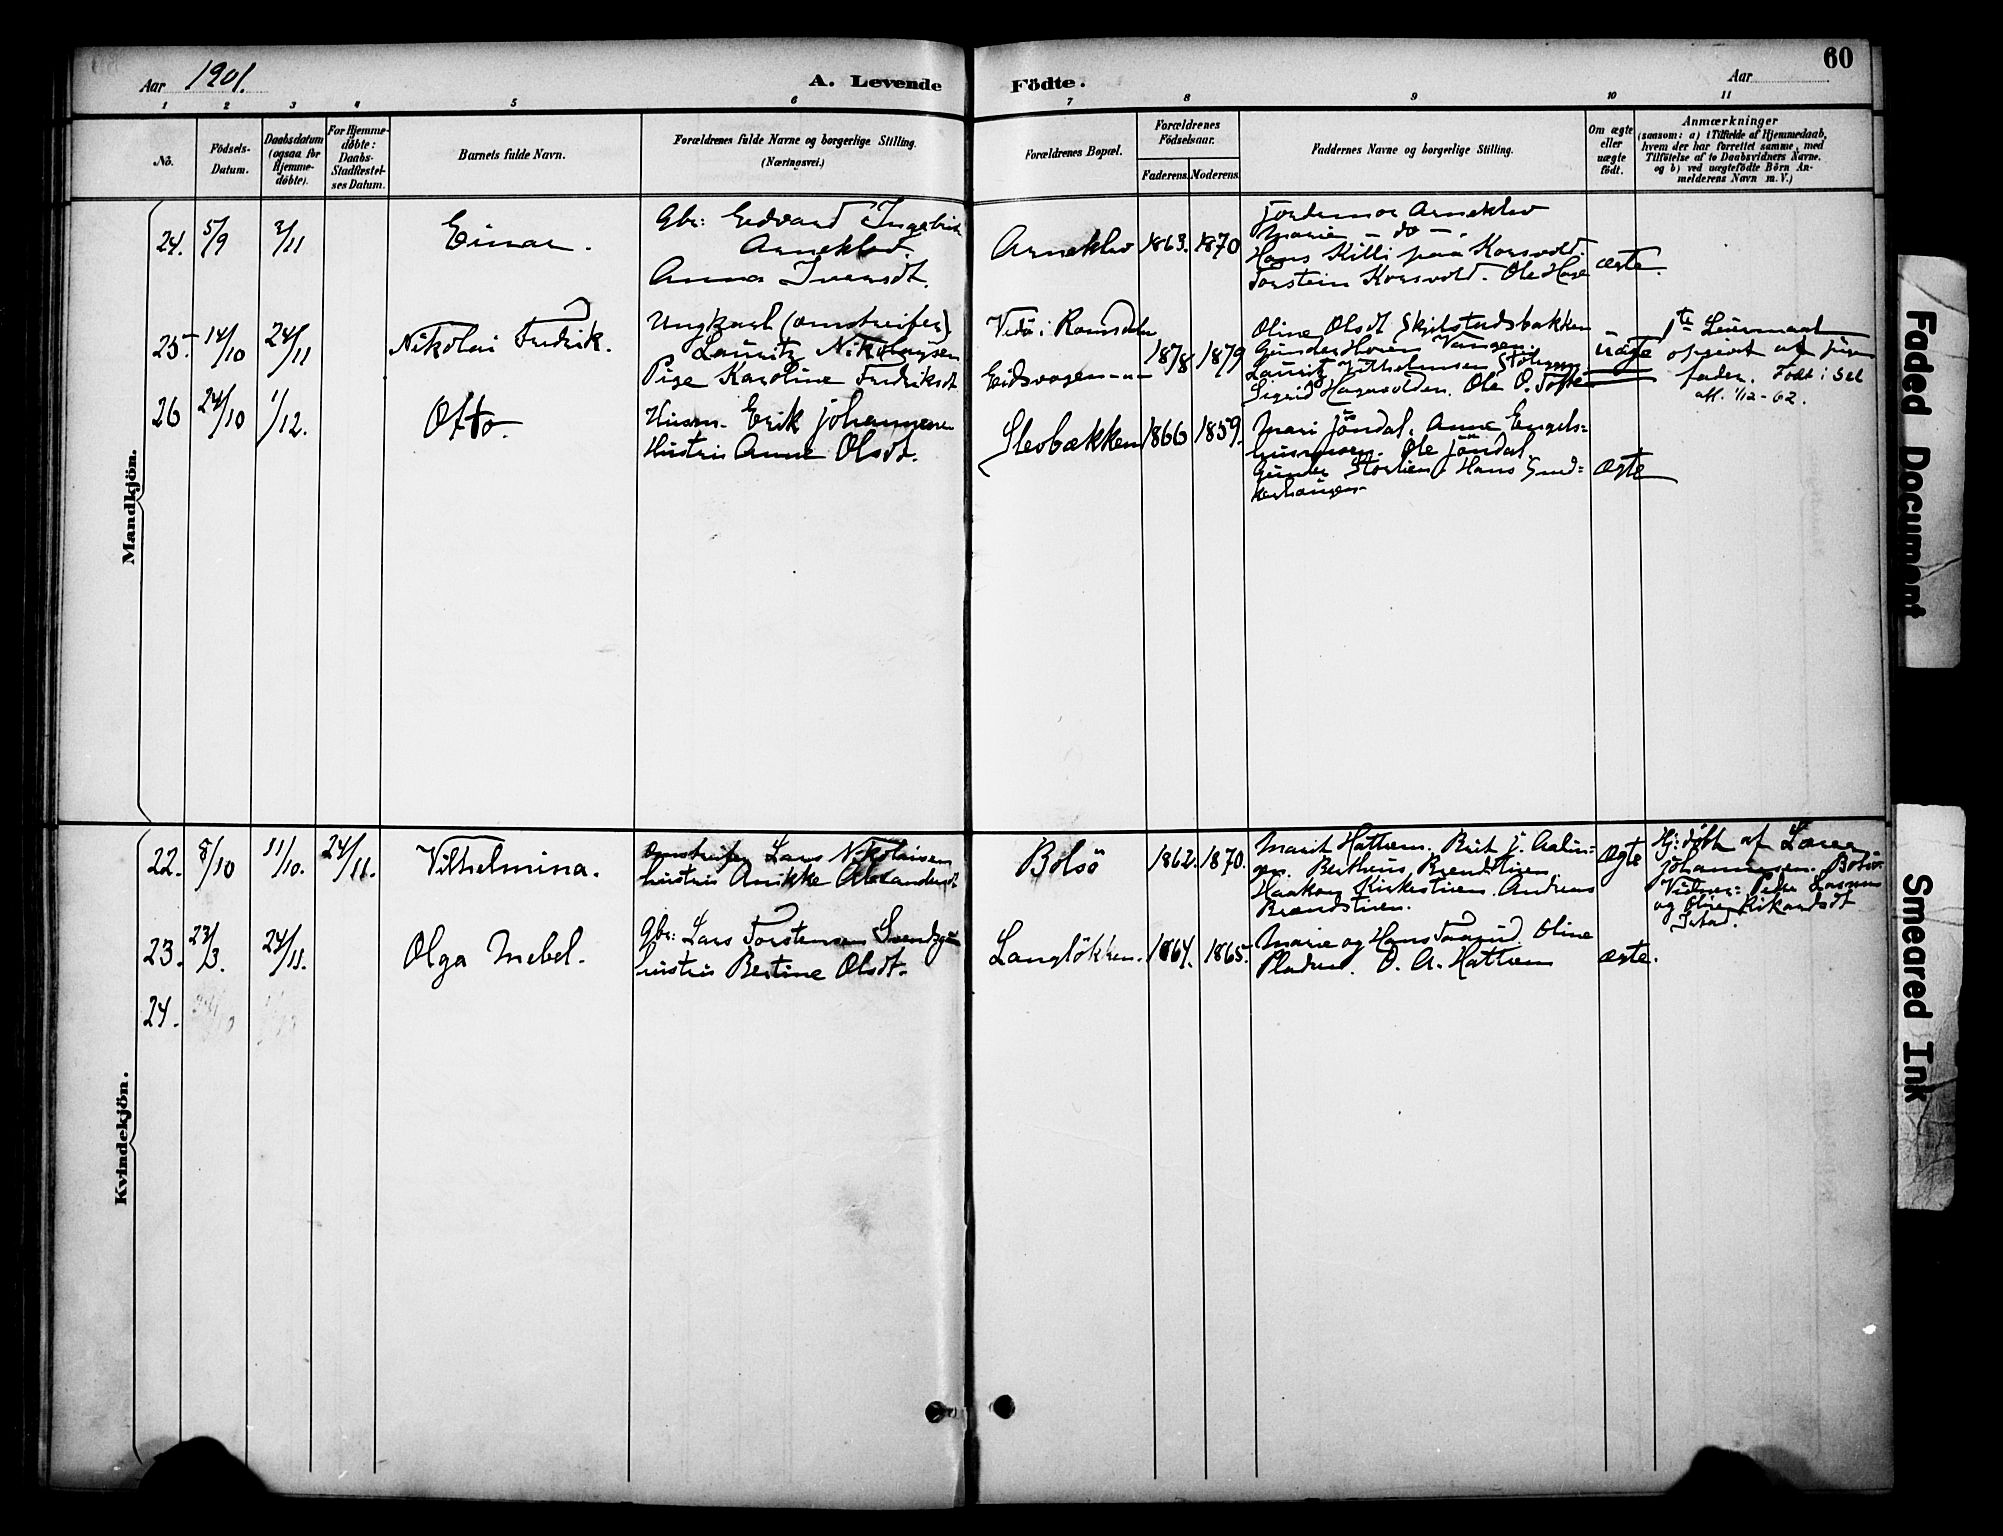 60
Aar 1901.
A. Levende Födte.
Aar
1 2 3 4 5 6 7 8 9 10 11
No.
Födsels-
Datum.
Daabsdatum
(ogsaa for
Hjemme-
döbte).
For Hjemme-
döbte:
Daabs-
Stadfæstel-
ses Datum.
Barnets fulde Navn.
Forældrenes fulde Navne og borgerlige Stilling.
(Næringsvei.)
Forældrenes Bopæl.
Forældrenes
Födselsaar.
Faderens. Moderens.
Faddernes Navne og borgerlige Stilling.
Om ægte
eller
uægte
födt.
Anmærkninger
(saasom: a) i Tilfælde af Hjemmedaab,
hvem der har forrettet samme, med
Tilföielse af to Daabsvidners Navne.
og b) ved uægtefödte Börn An-
melderens Navn m. V.)
Mandkjön.
24. 5/9 3/11 Einar.
Gbr: Edvard Ingebrit
Arneklev.
Anna Iversdt.
Arneklev 1863. 1870
Arneklev
Marie - do -.
Hans Killi paa Korsvold.
Torstein Korsvold. Ole
ægte.
25. 14/10 24/11 Nikolai Fredrik.
Ungkarl (omstreifer)
Lauritz Nikolaysen
Pige Karoline Fredriksdt.
Vedö i Romsdalen
Eidsvaagen -"-
1878 1879
Oline Olsdt Skjelstadsbakken
Gunder Horen Vangen.
Lauritz Vilhelmsen
Sigrid Ole O. Tofte
uægte
1te Leiermaal
opgivet af pigens
fader. Födt i Sel
1/12-62.
26 24/10 1/12. Otto.
Husm. Erik Johannesen
Hustru Anne Olsdt.
Slevbækken 1866 1859.
Mari Jöndal. Anne Engels-
Ole Jöndal.
Gunder Storlien Hans
ægte
Kvindekjön.
22. 8/10 11/10. 24/11. Vilhelmina.
Omstreifer Lars Nikolaisen
hustru Anikke Alexandersdt
Bolsö 1862. 1870.
Marit Hattrem. Brit J.
Bertheus Brendstuen
Haakon Kirkestuen. Andreas
Brændstuen.
ægte
Hj: döbt af
Johannessen. Bolsö.
Vidner: Peder
og Oline Rikardsdt
Istad.
23. 23/3. 24/11. Olga Mebel.
Gbr: Lars Torstensen
hustru Bertine Olsdt.
Langlökken. 1864. 1865.
Marie og Hans Taarud Oline
O. A. Hattrem
ægte.
24.
Faded Document
Smeared Ink